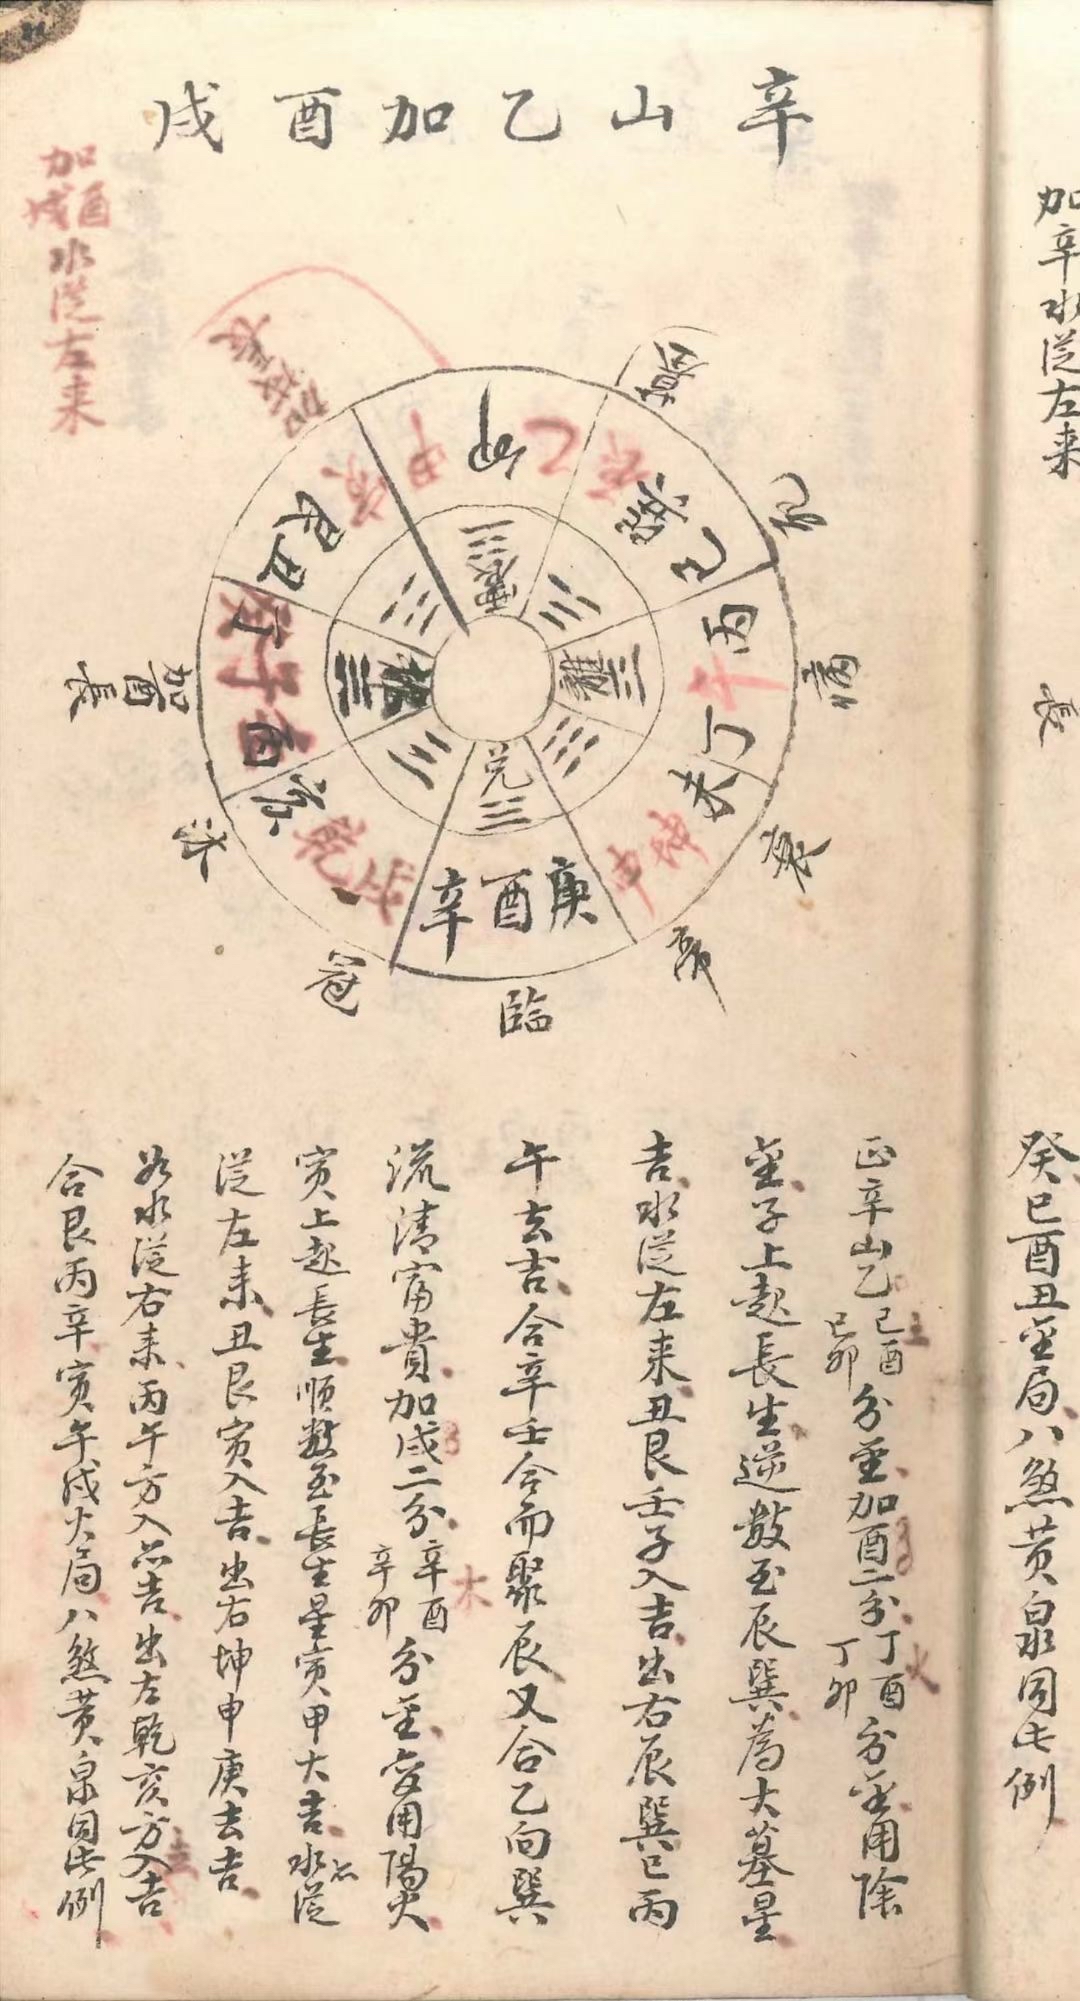 加辛水从左来
長
癸巳酉丑金局八煞黄泉同此例
辛山乙加酉戌
加酉
戌
水从左来
卯
乙
甲
巳
丙
午
丁
未
申
庚酉辛
丑
震
離
兌
坎
加酉長
沐
冠
臨
衰
病
正辛山乙己酉己卯分金加酉二分丁酉丁卯分金用陰
金子上起長生逆数至辰巽為大墓星
吉水从左来丑艮壬子入吉出右辰巽巳丙
午去吉合辛壬會而聚辰又合乙向巽
流清富貴加戌二分辛酉辛卯分金变用陽火
寅上起長生順数至長生星寅甲大吉水从
从左来丑艮寅入吉出右坤申庚去吉
若水从右来丙午方入亦吉出左乾亥方入吉
合艮丙辛寅午戌火局八煞黄泉同此例